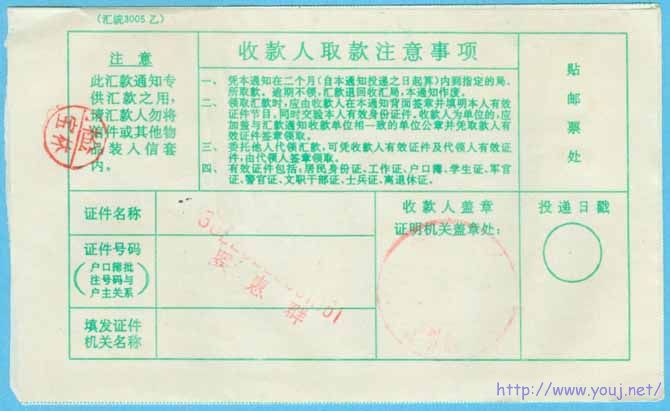 （汇皖3005乙）
注意
此汇款通知专
供汇款之用，
请汇款人勿将
信件或其他物
品装入信套
内。
收款人取款注意事项
一、凭本通知在二个月（自本通知投递之日起算）内到指定的局、
所取款。逾期不领，汇款退回收汇局，本通知作废。
二、领取汇款时，应由收款人在本通知背面签章并填明本人有效
证件节目，同时交验本人有效身份证件。收款人为单位的，应
加盖与汇款通知收款单位相一致的单位公章并凭取款人有
效证件签章领取。
三、委托他人代领汇款，可凭收款人有效证件及代领人有效证
件，由代领人签章领取。
四、有效证件包括：居民身份证、工作证、户口簿、学生证、军官
证、警官证、文职干部证、士兵证、离退休证。
贴
邮
票
处
证件名称
证件号码
（户口簿批
注号码与
户主关系）
填发证件
机关名称
收款人盖章
证明机关盖章处：
投递日戳
惠群
http://www.youj.net/